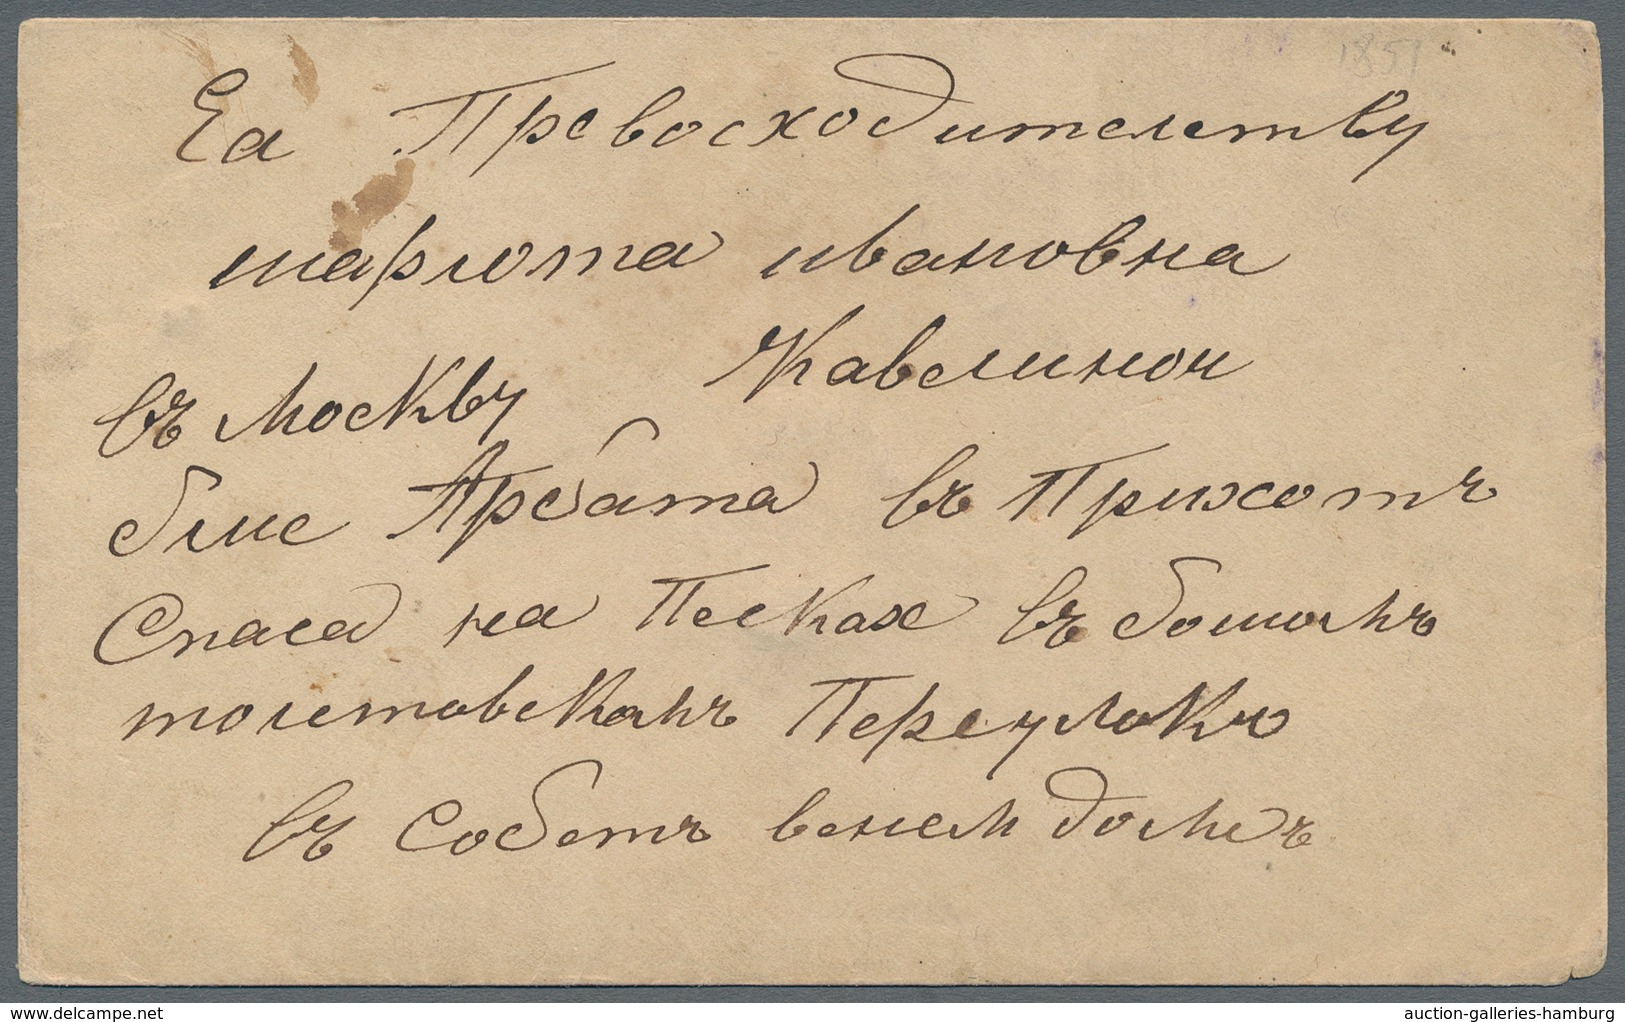 1851
Еа Превосходителству
шарлота ивановна
Кавелиной
въ Москву
блис Арбата въ Приходъ
Спаса на Песках въ большомъ
толстовскомъ Переулокъ
въ собствъ венем домъ
delcampe.net
auction-galleries-hamburg